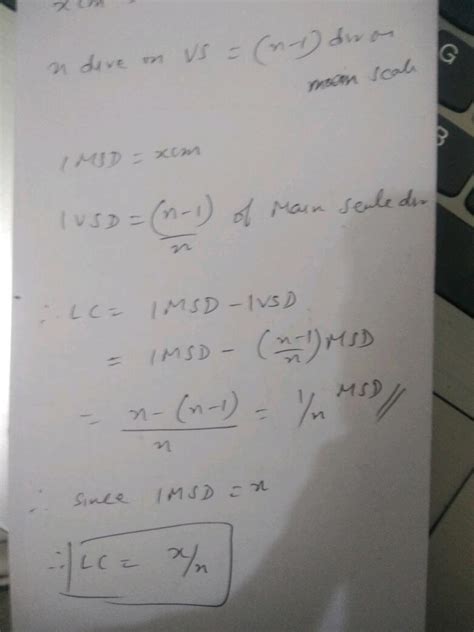 x cm
n divs on VS = (n-1) div on
main scale
1 MSD = x cm
1 VSD = (n-1)/n of Main Scale div
∴ LC = 1 MSD - 1 VSD
= 1 MSD - (n-1/n) MSD
= n-(n-1)/n = 1/n MSD //
∴ since 1 MSD = x
∴ LC = x/n
G
B